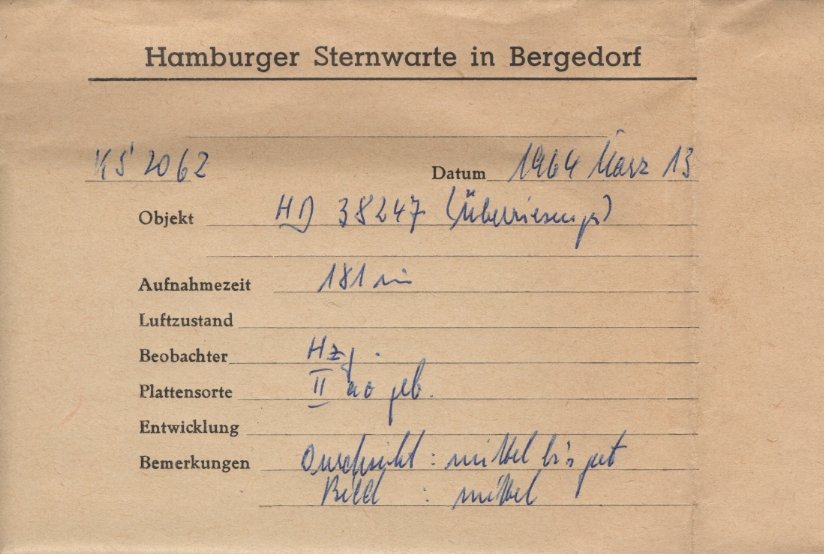 Hamburger Sternwarte in Bergedorf
KS 2062 Datum 1964 März 13
Objekt HD 38247 (Überriesenp)
Aufnahmezeit 181 m
Luftzustand
Beobachter Hzg.
Plattensorte II ao geb.
Entwicklung
Bemerkungen Durchsicht : mittel bis gut
Bild : mittel